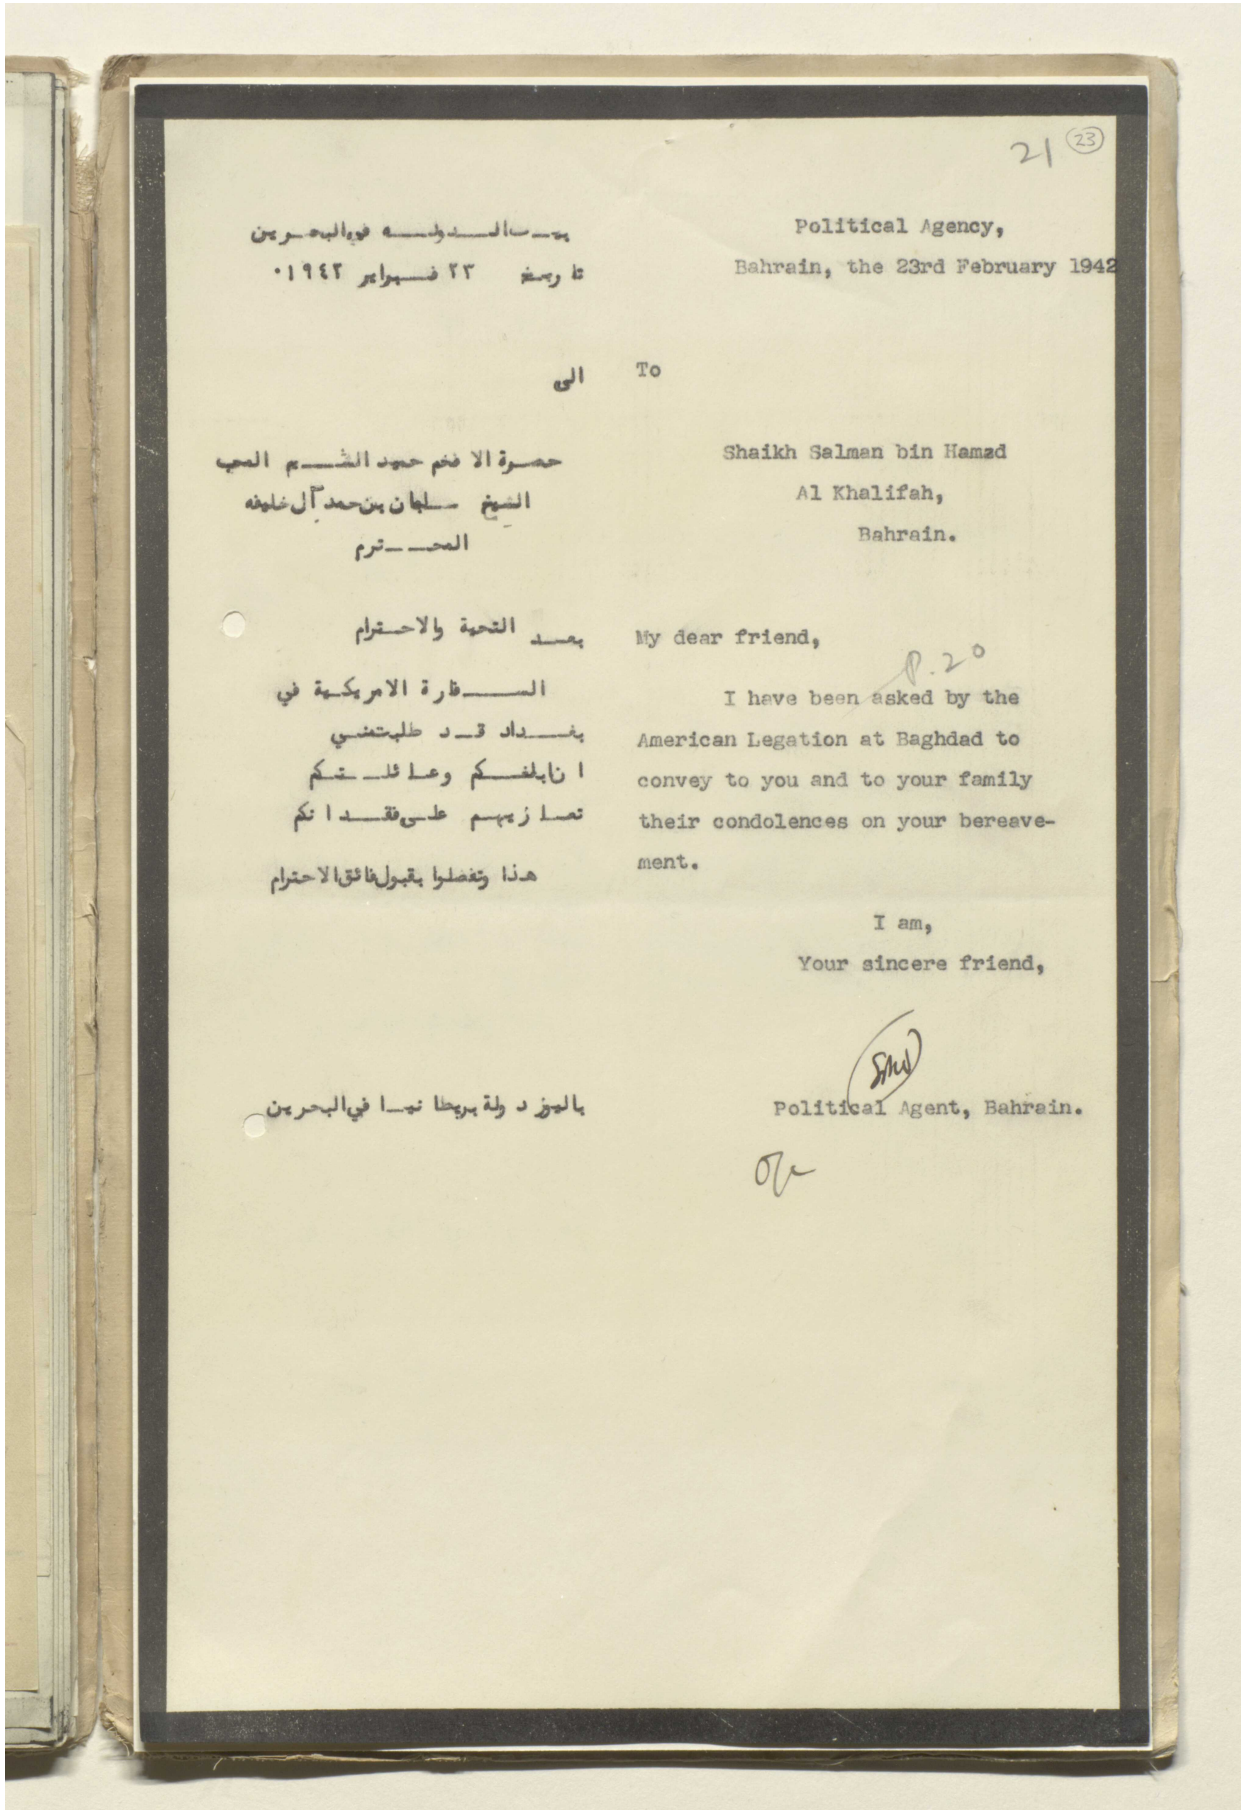 21 23
Political Agency,
Bahrain, the 23rd February 1942
To
Shaikh Salman bin Hamad
Al Khalifah,
Bahrain.
My dear friend,
P. 20
I have been asked by the
American Legation at Baghdad to
convey to you and to your family
their condolences on your bereave-
ment.
I am,
Your sincere friend,
Political Agent, Bahrain.
بيت الدولة في البحرين
تاريخ ٢٣ فبراير ١٩٤٢.
الى
حضرة الافخم حميد الشيم المحب
الشيخ سلمان بن حمد آل خليفه
المحترم
بعد التحية والاحترام
السفارة الامريكية في
بغداد قد طلبت مني
ان ابلغكم وعائلتكم
تعازيهم على فقدانكم
هذا وتفضلوا بقبول فائق الاحترام
باليوز دولة بريطانيا في البحرين